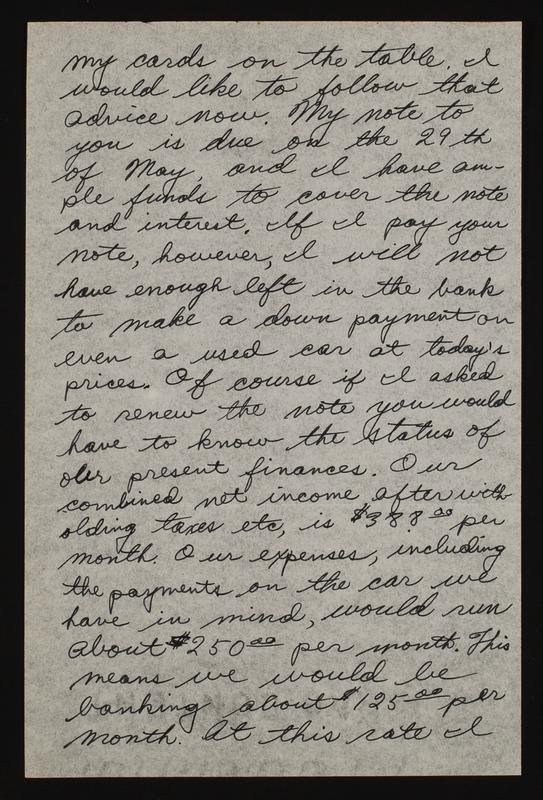 my cards on the table. I
would like to follow that
advice now. My note to
you is due on the 29th
of May, and I have am-
ple funds to cover the note
and interest. If I pay your
note, however, I will not
have enough left in the bank
to make a down payment on
even a used car at today's
prices. Of course if I asked
to renew the note you would
have to know the status of
our present finances. Our
combined net income after with-
olding taxes etc, is $388.00 per
month. Our expenses, including
the payments on the car we
have in mind, would run
about $250.00 per month. This
means we would be
banking about $125.00 per
month. At this rate I